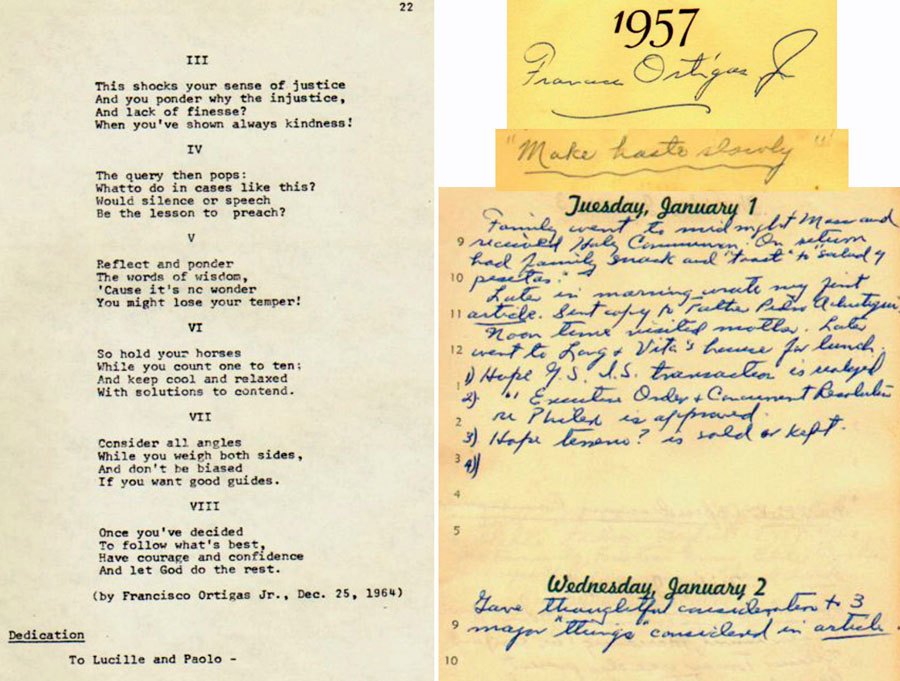 22
III
This shocks your sense of justice
And you ponder why the injustice,
And lack of finesse?
When you've shown always kindness!
IV
The query then pops:
Whatto do in cases like this?
Would silence or speech
Be the lesson to preach?
V
Reflect and ponder
The words of wisdom,
'Cause it's nc wonder
You might lose your temper!
VI
So hold your horses
While you count one to ten;
And keep cool and relaxed
With solutions to contend.
VII
Consider all angles
While you weigh both sides,
And don't be biased
If you want good guides.
VIII
Once you've decided
To follow what's best,
Have courage and confidence
And let God do the rest.
(by Francisco Ortigas Jr., Dec. 25, 1964)
Dedication
To Lucille and Paolo -
1957
Ortigas Jr
"Make haste slowly"
Tuesday, January 1
Family went to midnight Mass and
9 received Holy Communion. On return
had family snack and "toast" to "salud y
10 pesetas."
Later in morning wrote my joint
11 article. Sent copy to Father Pedro
Noon time visited mother. Later
12 went to Long & Vita's house for lunch.
1) Hope G.S. I.S. transaction is realized
1
2) " Executive Order & Concurrent Resolution
2 re is approved.
3) Hope terreno? is sold or kept.
3
4)
4
5
Wednesday, January 2
Gave thoughtful consideration to 3
9 major "things" considered in article.
10